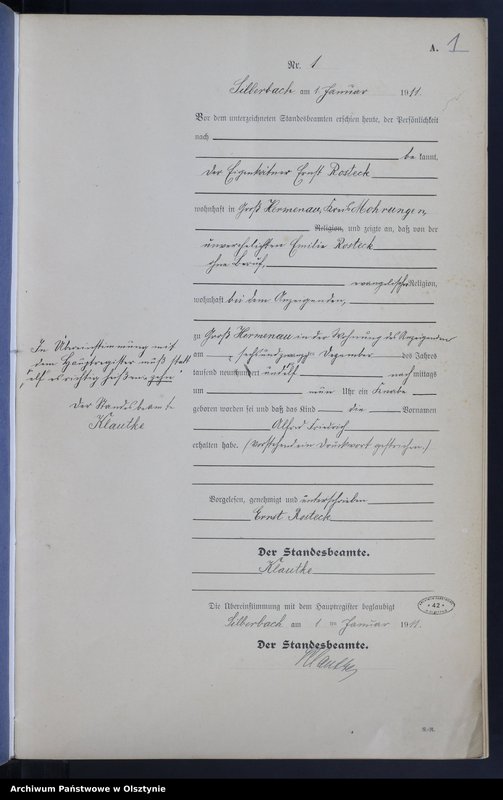 A. 1
Nr. 1
Silberbach am 1 Januar 1911.
Vor dem unterzeichneten Standesbeamten erschien heute, der Persönlichkeit
nach
be kannt,
der Eigenkätner Ernst Rosteck
wohnhaft in Groß Hermenau, Kreis Mohrungen,
Religion, und zeigte an, daß von der
unverehelichten Emilie Rosteck
ohne Beruf,
evangelischer Religion,
wohnhaft bei dem Anzeigenden,
zu Groß Hermenau in der Wohnung des Anzeigenden
am Dezember des Jahres
tausend neunhundert nach mittags
um neun Uhr ein Knabe
geboren worden sei und daß das Kind die Vornamen
Alfred Friedrich
erhalten habe. (Vorstehend ein Druckwort gestrichen.)
In Übereinstimmung mit
dem Hauptregister muß statt
"elf" es richtig heißen zehn
Der Standesbeamte
Klautke
Vorgelesen, genehmigt und unterschrieben
Ernst Rosteck
Der Standesbeamte.
Klautke
Die Übereinstimmung mit dem Hauptregister beglaubigt
Silberbach am 1 ten Januar 1911.
42
Der Standesbeamte.
Klautke
Archiwum Państwowe w Olsztynie